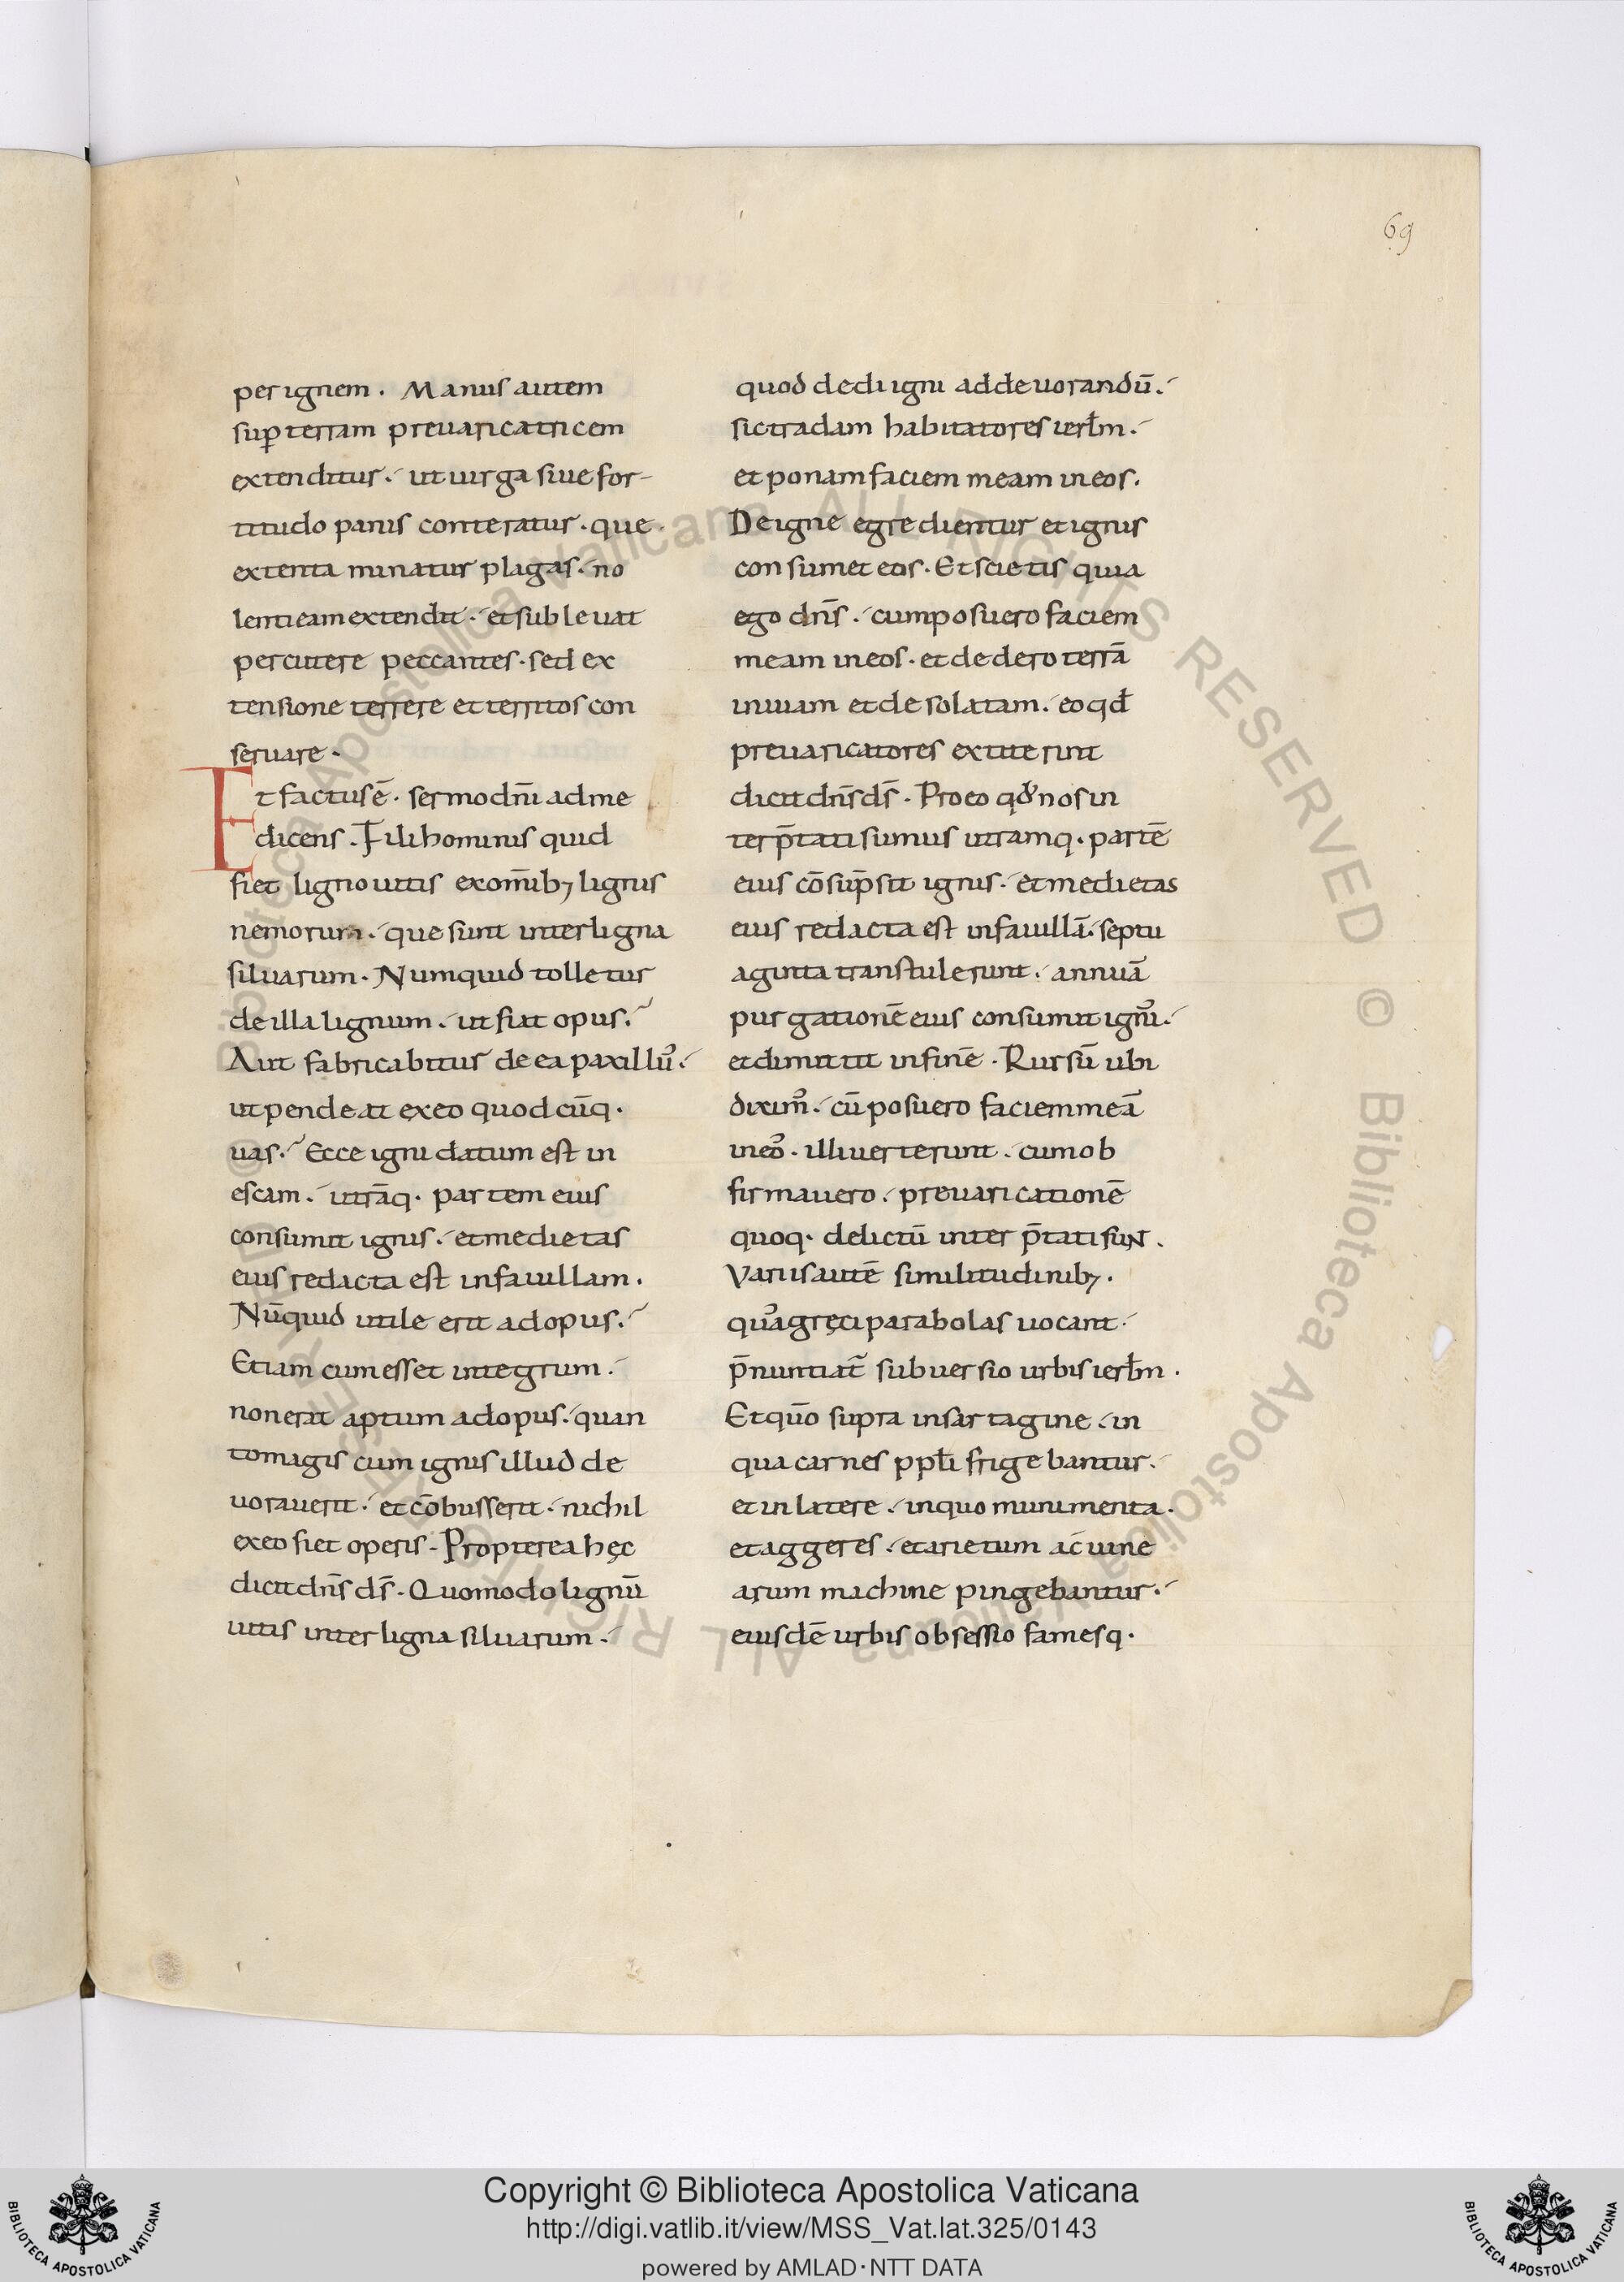 69
per ignem. Manus autem
sup̱ terram prevaricatricem
extenditur. ut virga sive for-
titudo panis conteratur. que
extenta minatur plagas. no
lenti eam extendit. et sublevat
percutere peccantes. sed ex
tensione terrere et territos con
servare.
Et factus ē. sermo dn̄i ad me
dicens. Fili hominis quid
fiet ligno vitis ex om̄ib; lignis
nemorum. que sunt inter ligna
silvarum. Numquid tolletur
de illa lignum. ut fiat opus.
Aut fabricabitur de ea paxillū.
ut pendeat ex eo quodcūq.
vas. Ecce igni datum est in
escam. utrāq. partem eius
consumit ignis. et medietas
eius redacta est in favillam.
Nūquid utile erit ad opus.
Etiam cum esset integrum.
non erat aptum ad opus. quan
tomagis cum ignis illud de
voraverit. et cōbusserit. nichil
ex eo fiet operis. Propterea hęc
dicit dn̄s ds̄. Quomodo lignū
vitis inter ligna silvarum.
quod dedi igni ad devorandū.
sic tradam habitatores ierl̄m.
et ponam faciem meam in eos.
De igne egredientur et ignis
consumet eos. Et scietis quia
ego dn̄s. cum posuero faciem
meam in eos. et dedero terrā
inviam et desolatam. eo qd̄
prevaricatores extiterint
dicit dn̄s ds̄. Pro eo qđ nos in
terp̄tati sumus utramq. partē
eius cōsūpsit ignis. et medietas
eius redacta est in favillā. septu
aginta transtulerunt. annuā
purgationē eius consumit ignis.
et dimittit in finē. Rursū ubi
diximꝰ. cū posuero faciem meā
in eos. illi verterunt. cum ob
firmavero. prevaricationē
quoq. delictū interp̄tati suN.
Variis autē similitudinib;.
quas gręci parabolas vocant.
p̄nuntiat̄ subversio urbis ierl̄m.
Et quō supra in sartagine. in
qua carnes ppl̄i frigebantur.
et in latere. in quo munimenta.
et aggeres. et arietum ac vine
arum machine pingebantur.
eiusdē urbis obsessio famesq.
Copyright © Biblioteca Apostolica Vaticana
http://digi.vatlib.it/view/MSS_Vat.lat.325/0143
powered by AMLAD·NTT DATA